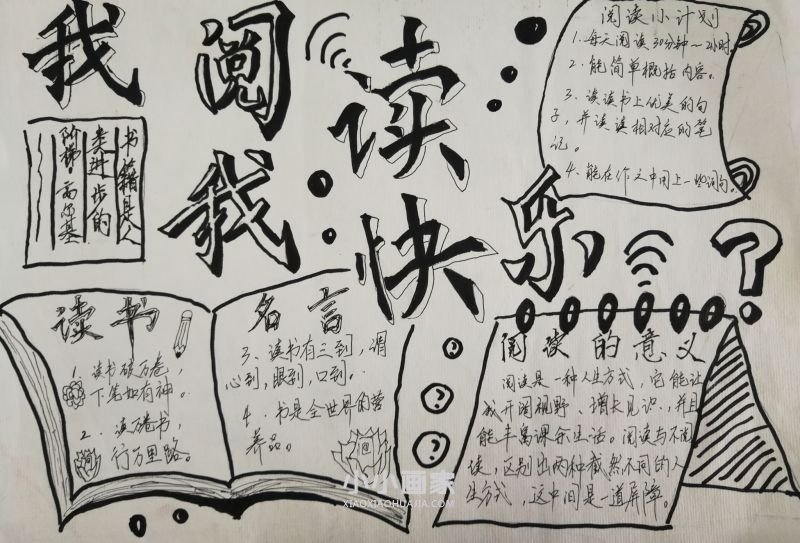 我阅读
我快乐
书籍是人
类进步的
阶梯。高尔基
阅读小计划
1.每天阅读30分钟～2小时
2.能简单概括内容。
3.读读书上优美的句
子，并读读相对应的笔
记。
4.能在作文中用上一些词句。
读书
1.读书破万卷，
下笔如有神。
2.读万卷书，
行万里路。
名言
3、读书有三到，谓
心到，眼到，口到。
4.书是全世界的营
养品。
阅读的意义
阅读是一种人生方式，它能让
我开阔视野、增长见识、并且
能丰富课余生活。阅读与不阅
读，区别出两种截然不同的人
生方式，这中间是一道屏障。
小小画家
XIAOXIAOHUAJIA.COM